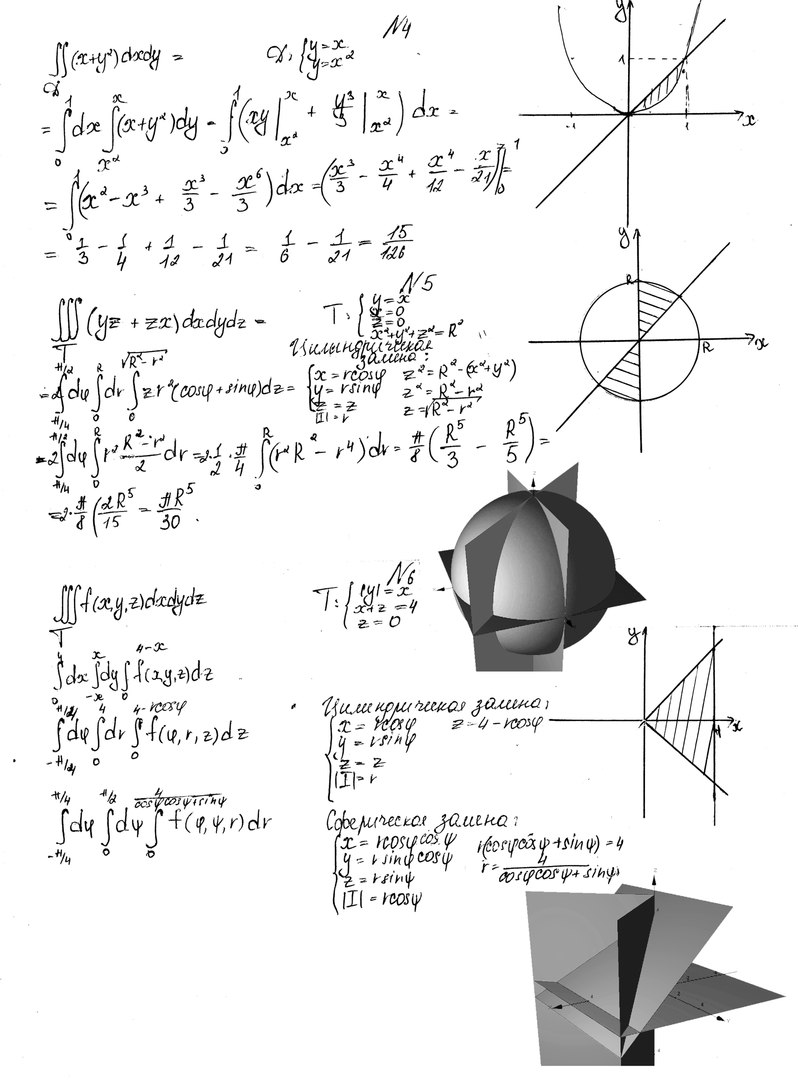 N4
∬_D (x+y²)dxdy = D: { y=x y=x²
= ∫_0^1 dx ∫_{x²}^x (x+y²)dy = ∫_0^1 (xy|_{x²}^x + y³/3|_{x²}^x) dx =
= ∫_0^1 (x² - x³ + x³/3 - x⁶/3) dx = (x³/3 - x⁴/4 + x⁴/12 - x⁷/21)|_0^1
= 1/3 - 1/4 + 1/12 - 1/21 = 1/6 - 1/21 = 15/126
y
1
-1 1 x
N5
∭_T (yz + zx)dxdydz = T: { y=x x=0 z=0 x²+y²+z²=R²
Цилиндрическая
замена:
= 2∫_{π/4}^{π/2} dφ ∫_0^R dr ∫_0^{√(R²-r²)} zr²(cosφ+sinφ)dz =
{ x=rcosφ z²=R²-(x²+y²)
y=rsinφ z²=R²-r²
z=z z=√(R²-r²)
|I|=r
= 2∫_{π/4}^{π/2} dφ ∫_0^R r² (R²-r²)/2 dr = 2·1/2·π/4 ∫_0^R (r²R² - r⁴)dr = π/8 (R⁵/3 - R⁵/5) =
= 2·π/8 (2R⁵/15 = πR⁵/30.
y
R
R x
N6
∭_T f(x,y,z)dxdydz T: { |y|=x x+z=4 z=0
∫_0^4 dx ∫_{-x}^x dy ∫_0^{4-x} f(x,y,z)dz
∫_{-π/4}^{π/4} dφ ∫_0^4 dr ∫_0^{4-rcosφ} f(φ,r,z)dz
Цилиндрическая замена:
{ x=rcosφ z=4-rcosφ
y=rsinφ
z=z
|I|=r
y
4 x
∫_{-π/4}^{π/4} dφ ∫_0^{π/2} dψ ∫_0^{4/(cosφcosψ+sinψ)} f(φ,ψ,r)dr
Сферическая замена:
{ x=rcosφcosψ r(cosφcosψ+sinψ)=4
y=rsinφcosψ r=4/(cosφcosψ+sinψ)
z=rsinψ
|I|=rcosψ